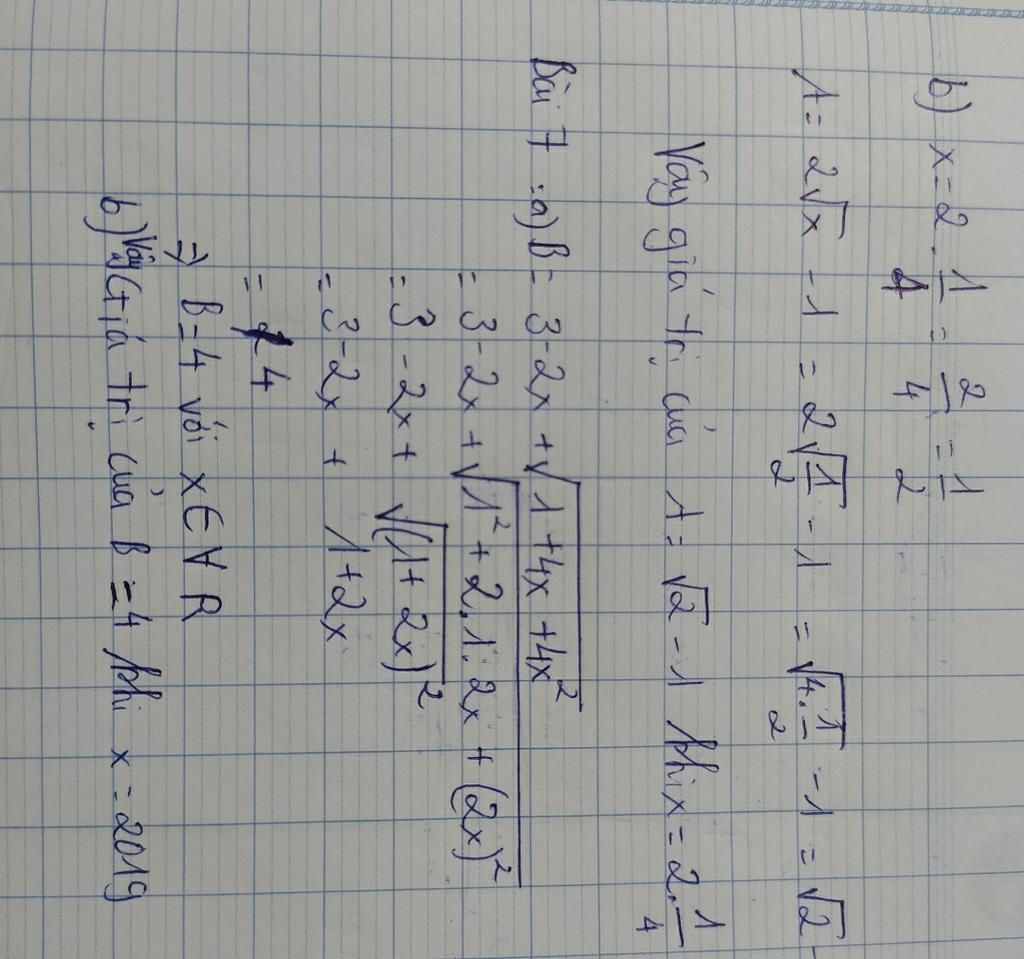 b) x = 2 . 1/4 = 2/4 = 1/2
A = 2√x - 1 = 2√(1/2) - 1 = √(4.1/2) - 1 = √2 -
Vây giá trị của A = √2 - 1 khi x = 2.1/4
Bài 7 : a) B = 3 - 2x + √(1 + 4x + 4x²)
= 3 - 2x + √(1² + 2.1.2x + (2x)²)
= 3 - 2x + √((1 + 2x)²)
= 3 - 2x + 1 + 2x
= 4
=> B = 4 với x ∈ ∀ R
b) Vậy Giá trị của B = 4 khi x = 2019